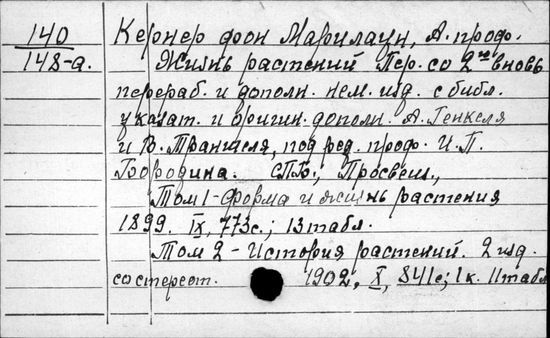 140 Кернер фон Марилаун, А. проф.
148-а. Жизнь растений Пер. со 2го вновь
перераб. и дополн. нем. изд. с библ.
указат. и оригин. дополн. А. Генкеля
и В. Траншеля, под ред. проф. И. П.
Бородина. СПБ., Просвещ.,
Том 1 - Форма и жизнь растения
1899. IX, 773с.; 13 табл.
Том 2 - История растений. 2 изд.
со стереот. 1902, X, 841с; 1к. 11 табл